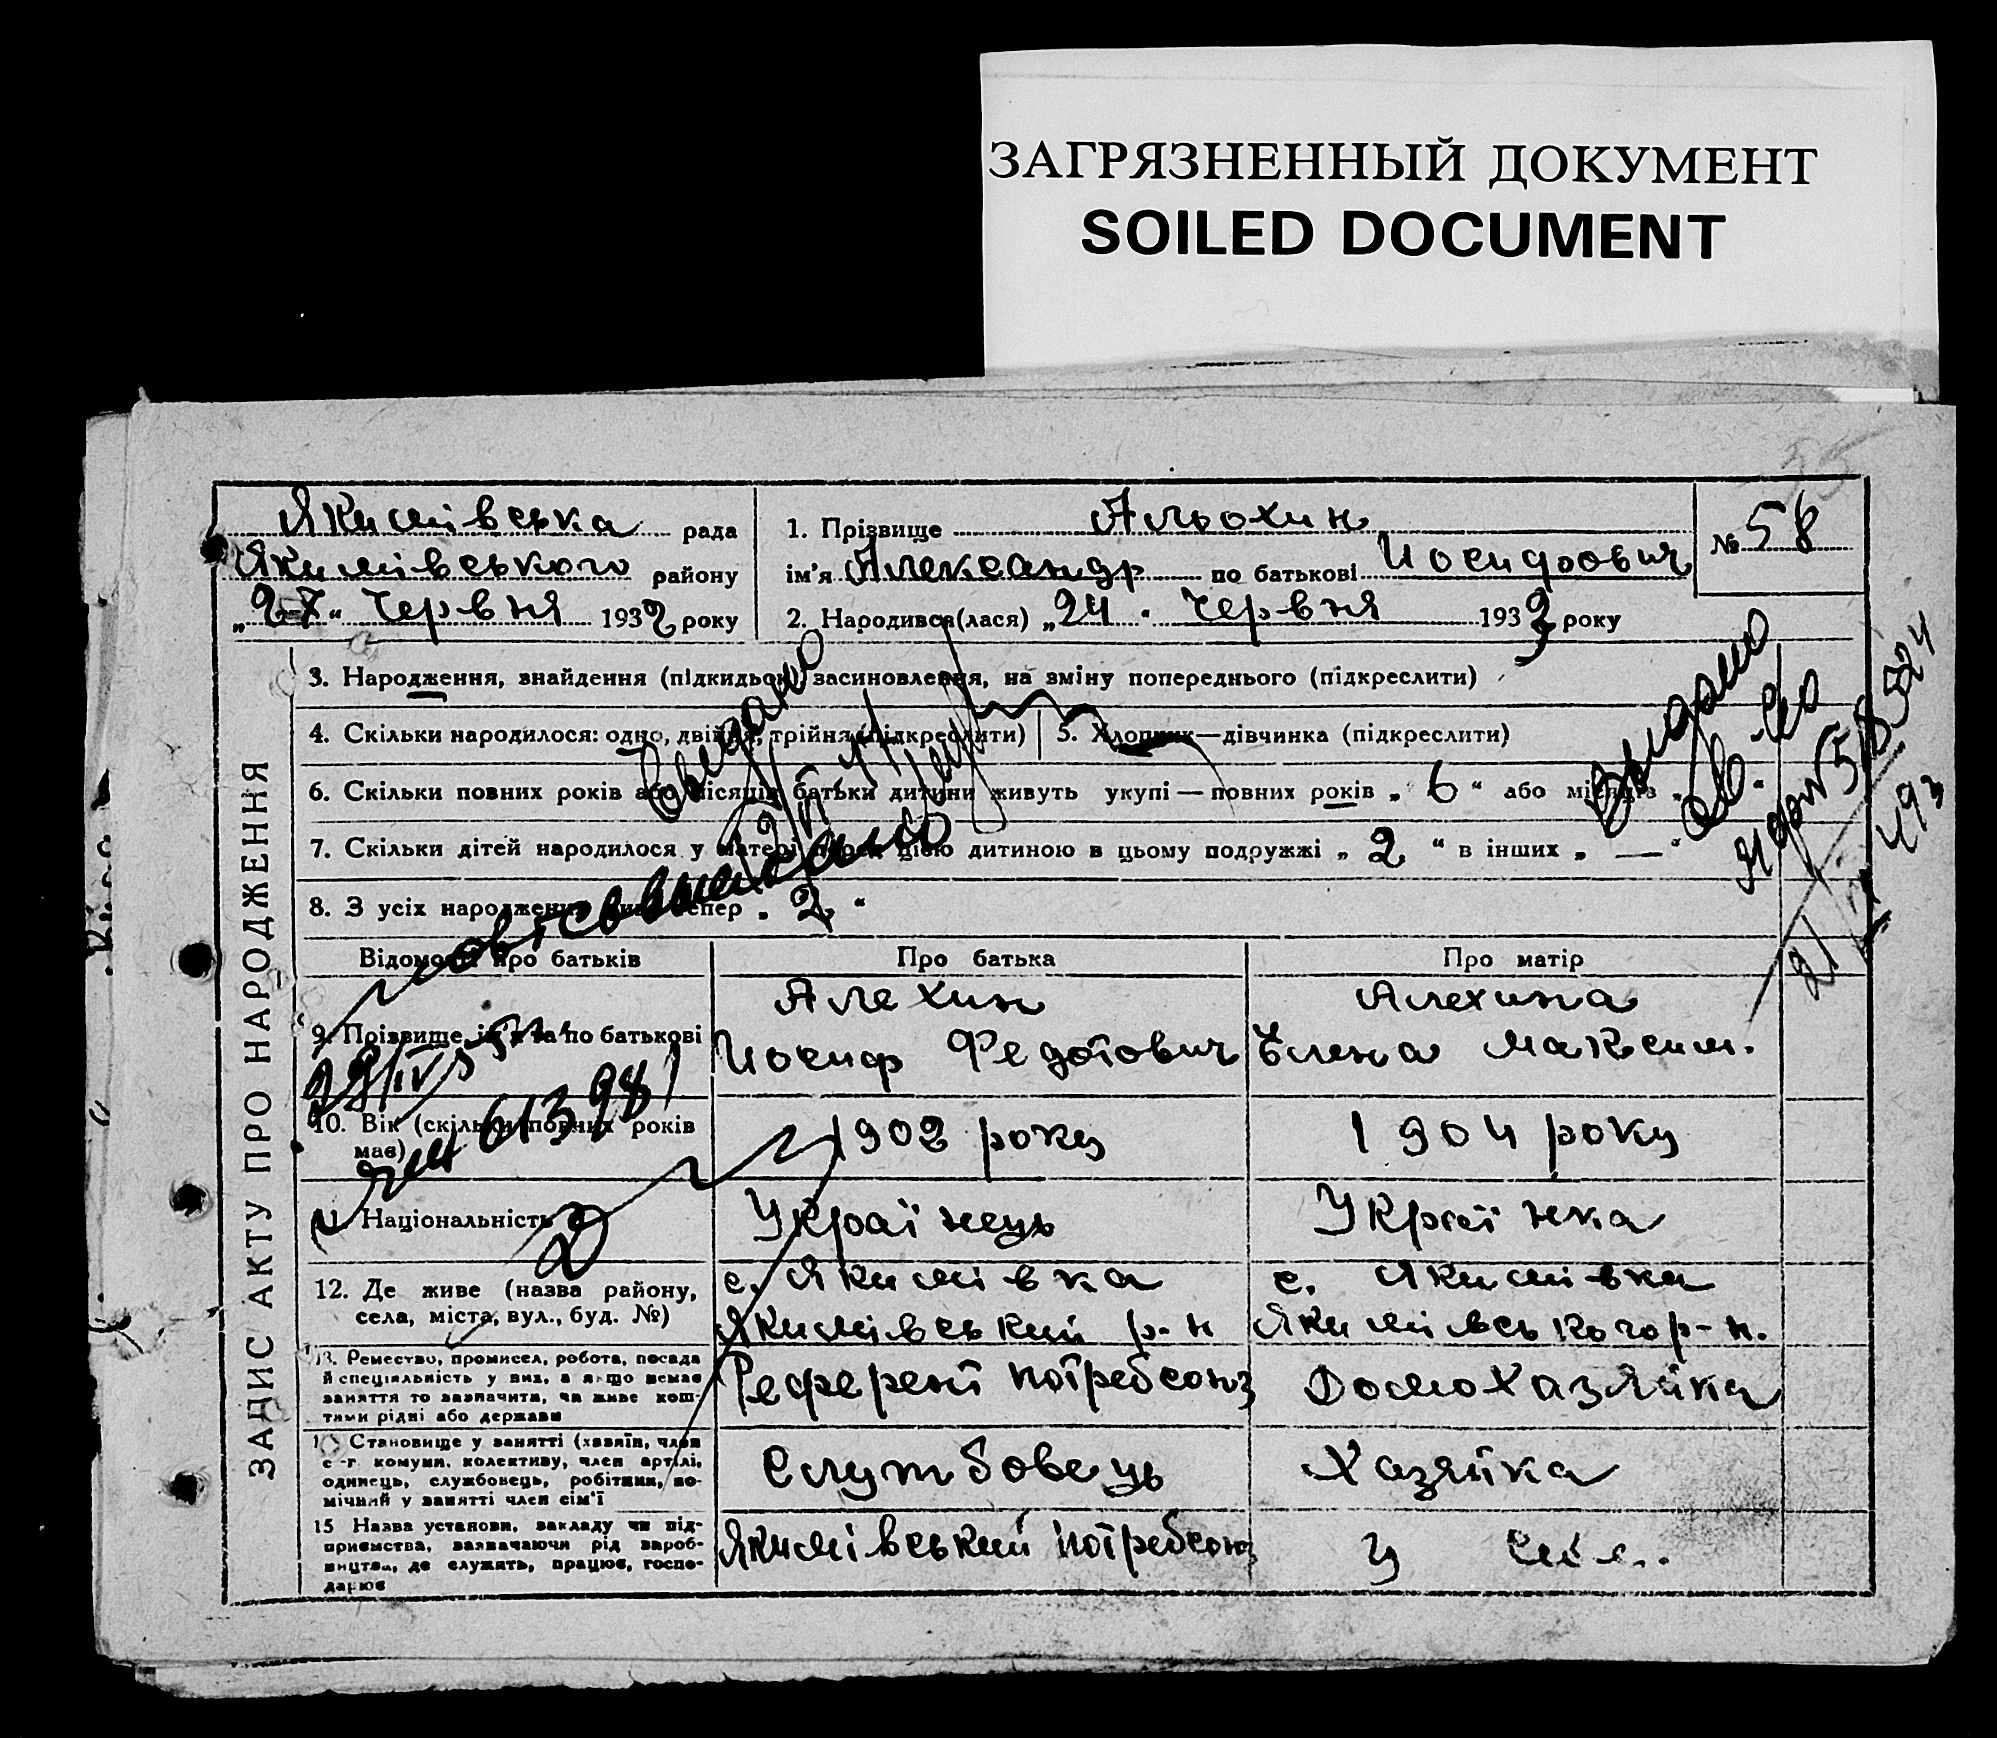 ЗАГРЯЗНЕННЫЙ ДОКУМЕНТ
SOILED DOCUMENT
ЗАПИС АКТУ ПРО НАРОДЖЕННЯ
Якимівська рада
Якимівського району
„27“ червня 1932 року
1. Прізвище Альохин
ім'я Александр по батькові Иосифович
2. Народився(лася) „24“ червня 1932 року
№ 58
3. Народження, знайдення (підкидьок) засиновлення, на зміну попереднього (підкреслити)
4. Скільки народилося: одно, двійня, трійня (підкреслити)
5. Хлопчик—дівчинка (підкреслити)
6. Скільки повних років або місяців батьки дитини живуть укупі — повних років „6“ або місяців „ “
7. Скільки дітей народилося у матері перед цією дитиною в цьому подружжі „2“ в інших „—“
8. З усіх народжених тепер „2“
Відомості про батьків
Про батька
Про матір
9. Прізвище, ім'я та по батькові
Алехин
Иосиф Федотович
Алехина
Елена Максим.
10. Вік (скільки повних років має)
1902 року
1904 року
Національність
Українець
Українка
12. Де живе (назва району, села, міста, вул., буд. №)
с. Якимівка
Якимівський р-н
с. Якимівка
Якимівського р-н.
13. Ремество, промисел, робота, посада
й спеціяльність у них, а якщо немає
заняття то зазначити, чи живе кош-
тами рідні або держави
Референт потребсоюз
Домохазяйка
Становище у занятті (хазяїн, член
с.-г. комуни, колективу, член артілі,
одинець, службовець, робітник, по-
мічний у занятті член сім'ї
Службовець
Хазяйка
15 Назва установи, закладу чи під-
приємства, зазначаючи рід вироб-
ництва, де служить, працює, госпо-
дарює
Якимівський потребсоюз
У
Видано
613981